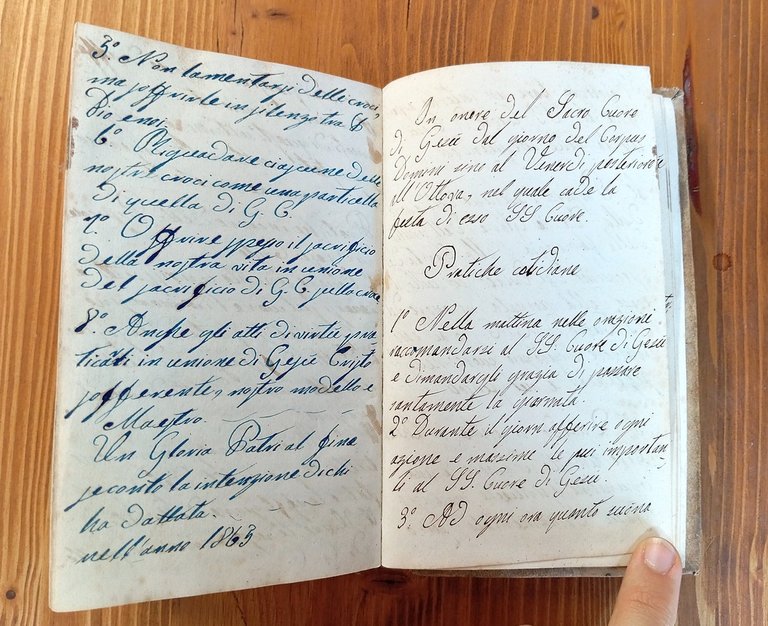 5.° Non lamentarsi delle croci,
ma soffrirle in silenzo tra
Dio e noi
6.° Risguardare ciascune delle
nostre croci come una particella
di quella di G. C.
7.° Offrire spesso il sacrificio
della nostra vita in unione
del sacrificio di G. C sulla croce
8.° Anche gli atti di virtù pra
ticati in unione di Gesù Cristo
sofferente, nostro modello e
Maestro.
Un Gloria Patri al fine
secondo la intenzione di chi
ha dattata.
nell'anno 1863
In onore del Sacro Cuore
di Gesù dal giorno del Corpus
Domini sino al Venerdì posteriore
all'Ottava, nel quale cade la
festa di esso SS. Cuore.
Pratiche cotidiane
1.° Nella mattina nelle orazioni
raccomandarsi al SS. Cuore di Gesù
e dimandargli grazia di passare
santamente la giornata.
2.° Durante il giorn offerire ogni
azione e massime le più importan-
ti al SS. Cuore di Gesù.
3.° Ad ogni ora quanto suona